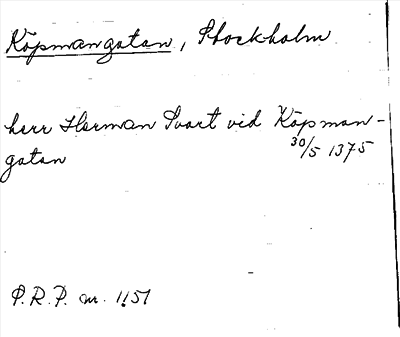 Köpmangatan, Stockholm
herr Herman Svart vid Köpman-
gatan
30/5 1375
P.R.P. nr. 1151